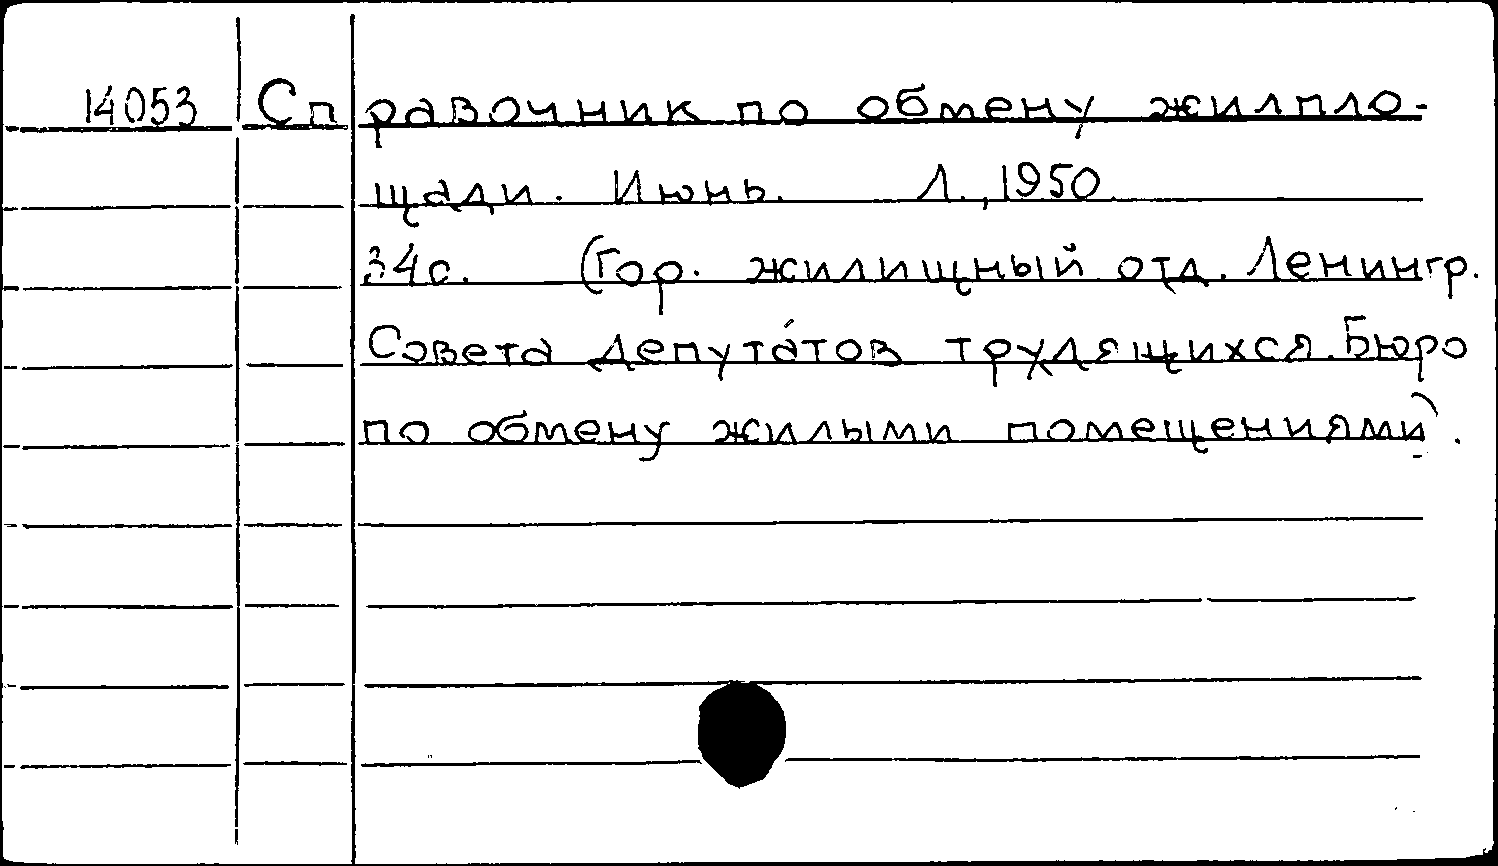 14053 Справочник по обмену жилпло-
щади. Июнь. Л., 1950
34с. (Гор. жилищный отд. Ленингр.
Совета депутатов трудящихся. Бюро
по обмену жилыми помещениями).